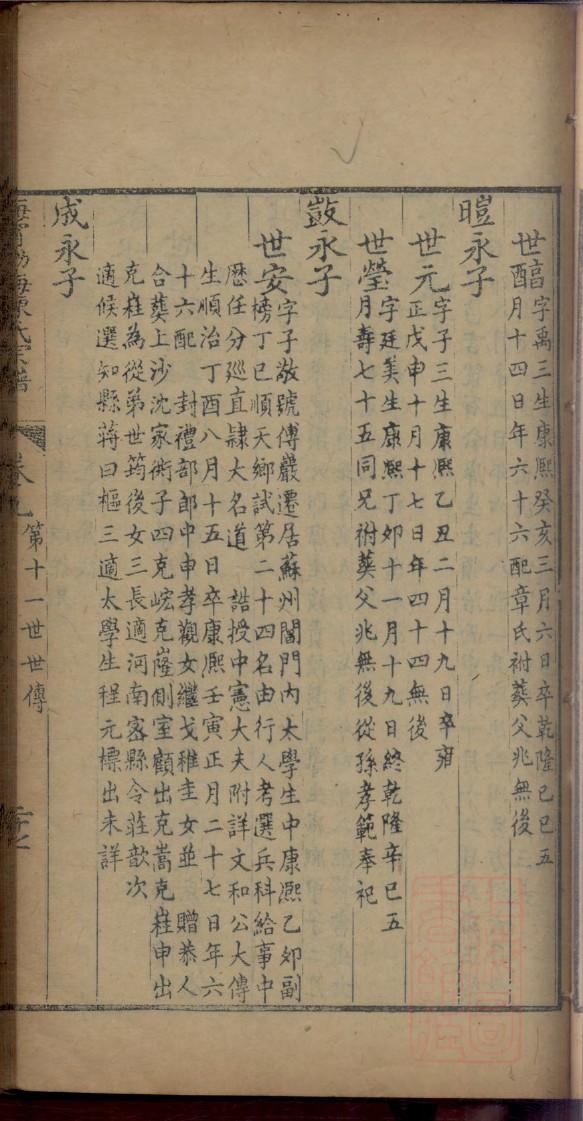 世𨣻字禹三生康熙癸亥三月六日卒乾隆己巳五
月十四日年六十六配章氏祔葬父兆無後
暟永子
世元字子三生康熙乙丑二月十九日卒雍
正戊申十月十七日年四十四無後
世瑩字廷美生康熙丁卯十一月十九日終乾隆辛巳五
月壽七十五同兄祔葬父兆無後從孫孝範奉祀
敳永子
世安字子敬號傳巖遷居蘇州閶門内太學生中康熙乙卯副
榜丁巳順天鄉試第二十四名由行人考選兵科給事中
歷任分廵直隷大名道 誥授中憲大夫附詳文和公大傳
生順治丁酉八月十五日卒康熙壬寅正月二十七日年六
十六配 封禮部郎中申孝觀女繼戈稚圭女並 贈恭人
合葬上沙沈家衖子四克峵克嶐側室顧出克嵩克嵀申出
克嵀為從弟世筠後女三長適河南密縣令莊歆次
適候選知縣蔣曰樞三適太學生程元標出未詳
成永子
海寧渤海陳氏宗譜 卷九 第十一世世傳